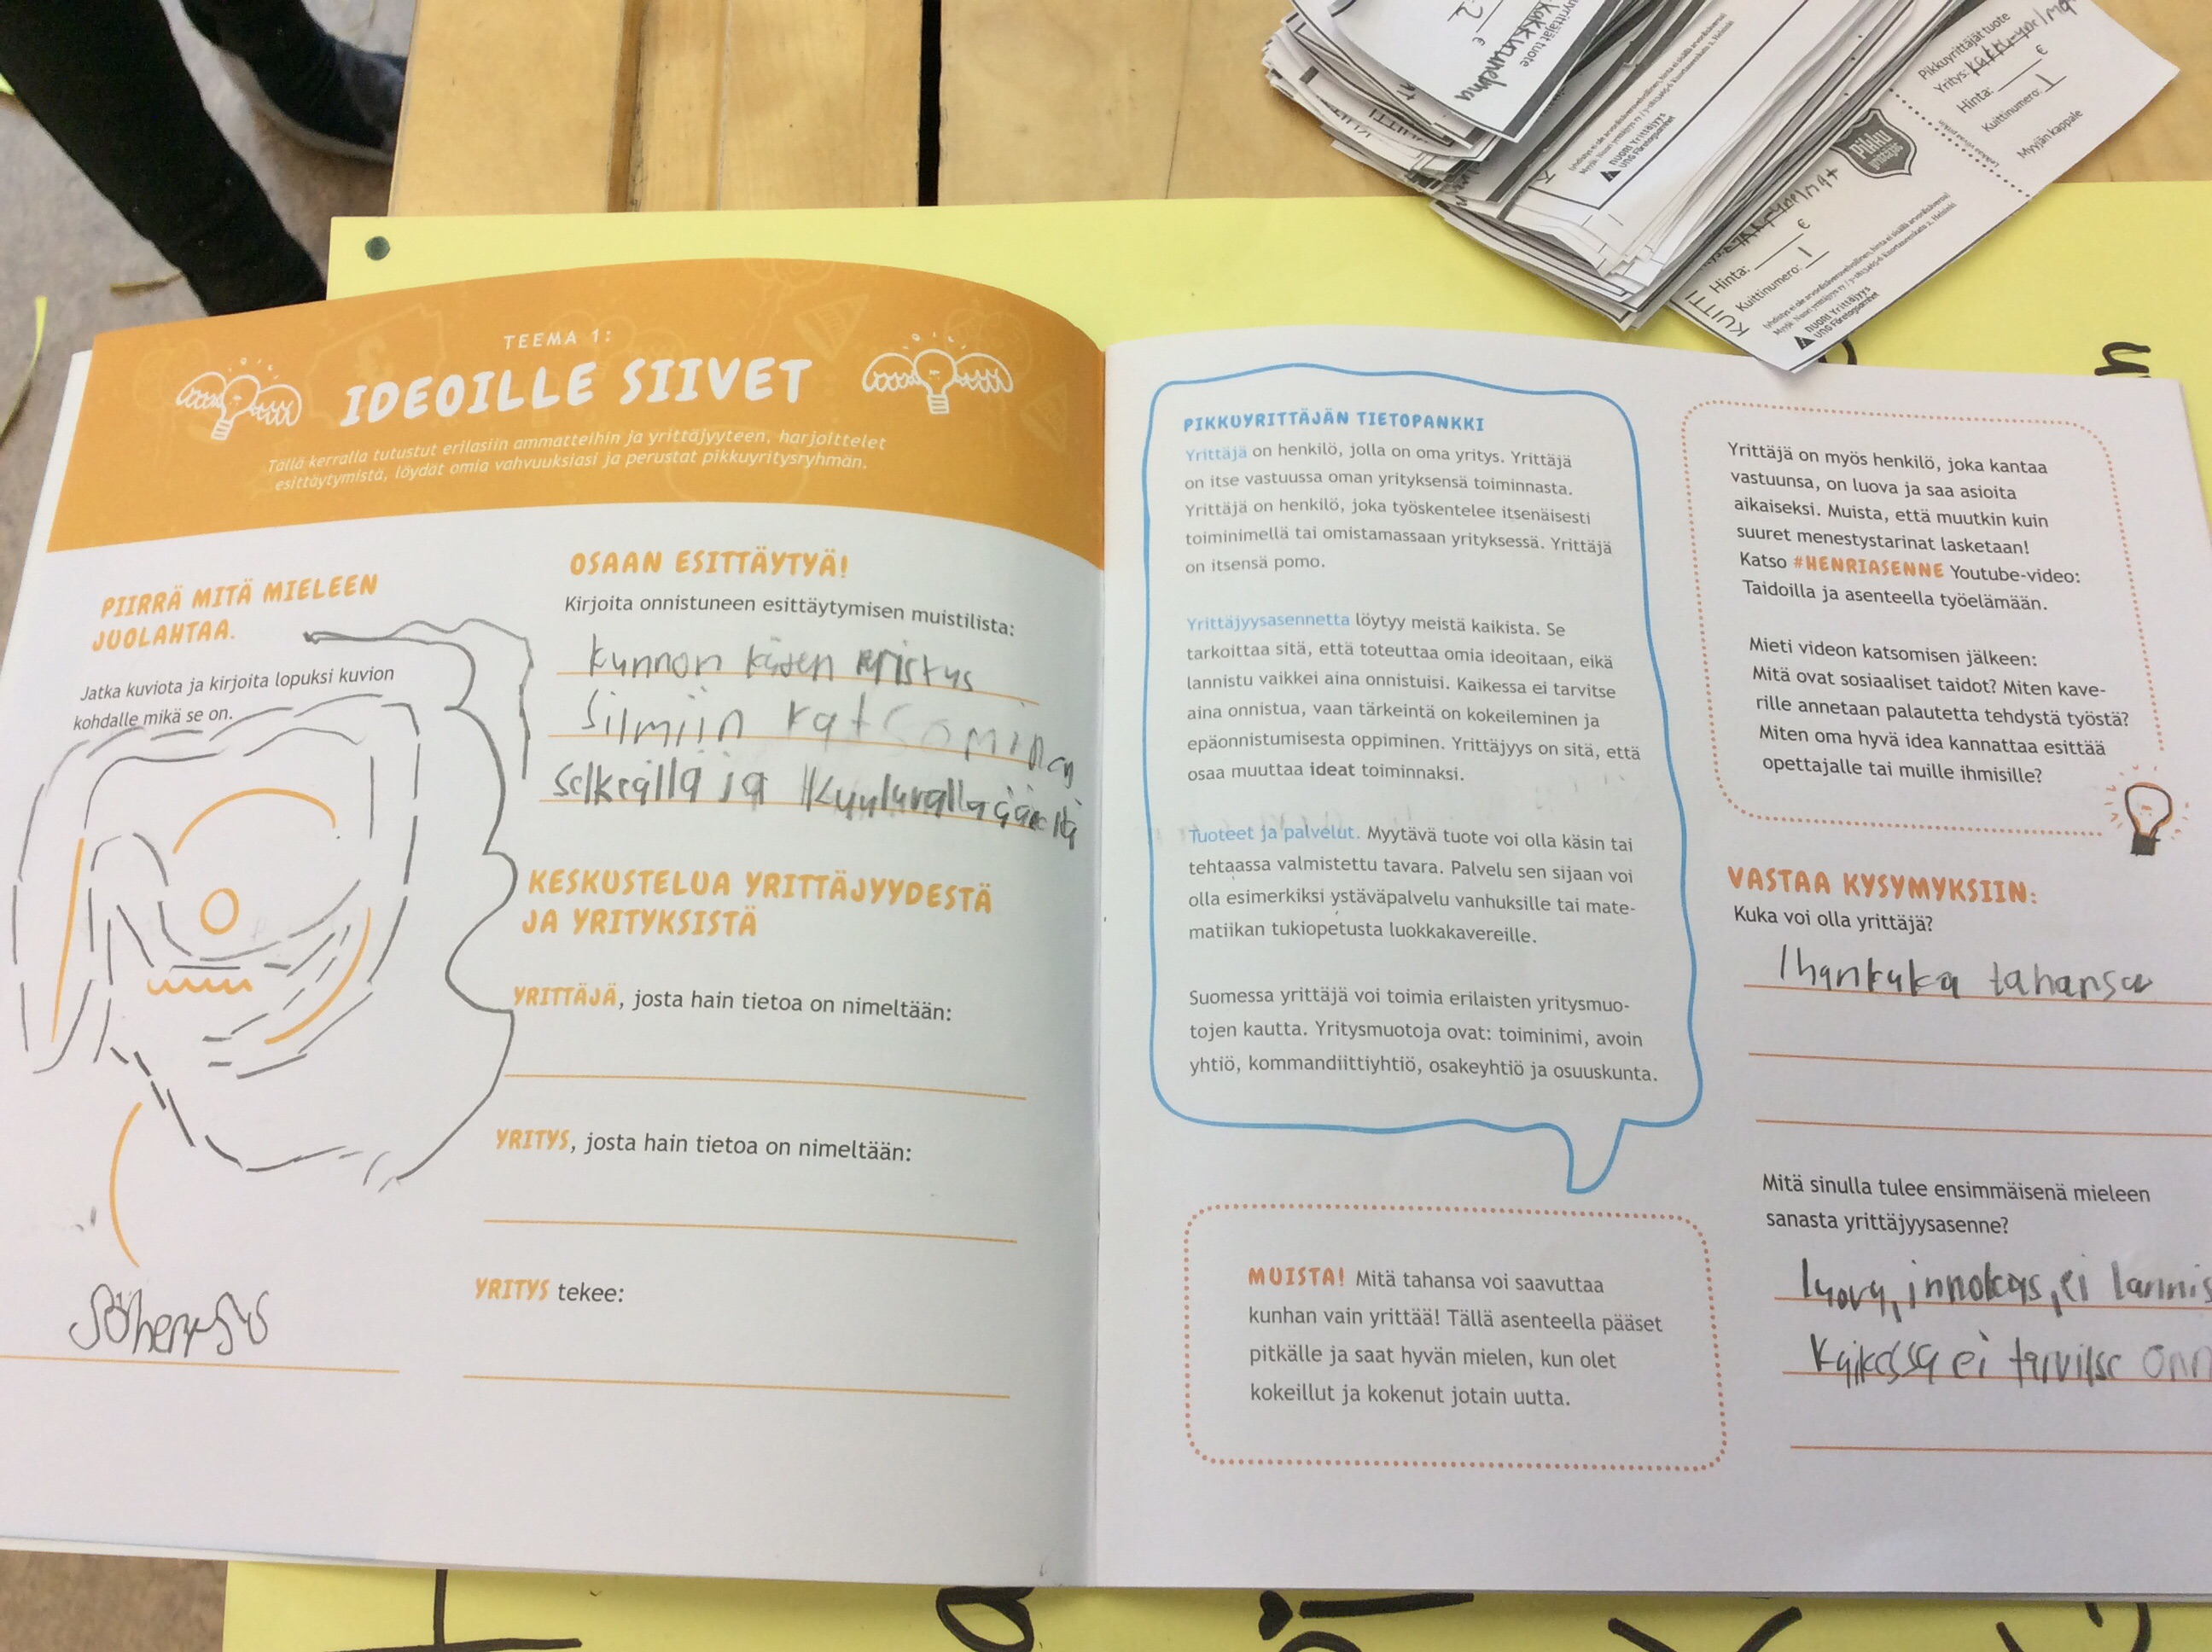 TEEMA 1:
IDEOILLE SIIVET
Tällä kerralla tutustut erilasiin ammatteihin ja yrittäjyyteen, harjoittelet
esittäytymistä, löydät omia vahvuuksiasi ja perustat pikkuyritysryhmän.
PIIRRÄ MITÄ MIELEEN
JUOLAHTAA.
Jatka kuviota ja kirjoita lopuksi kuvion
kohdalle mikä se on.
Söherrys
OSAAN ESITTÄYTYÄ!
Kirjoita onnistuneen esittäytymisen muistilista:
kunnon käden
Silmiin katsominen
selkeällä ja kuuluvalla
KESKUSTELUA YRITTÄJYYDESTÄ
JA YRITYKSISTÄ
YRITTÄJÄ, josta hain tietoa on nimeltään:
YRITYS, josta hain tietoa on nimeltään:
YRITYS tekee:
PIKKUYRITTÄJÄN TIETOPANKKI
Yrittäjä on henkilö, jolla on oma yritys. Yrittäjä
on itse vastuussa oman yrityksensä toiminnasta.
Yrittäjä on henkilö, joka työskentelee itsenäisesti
toiminimellä tai omistamassaan yrityksessä. Yrittäjä
on itsensä pomo.
Yrittäjyysasennetta löytyy meistä kaikista. Se
tarkoittaa sitä, että toteuttaa omia ideoitaan, eikä
lannistu vaikkei aina onnistuisi. Kaikessa ei tarvitse
aina onnistua, vaan tärkeintä on kokeileminen ja
epäonnistumisesta oppiminen. Yrittäjyys on sitä, että
osaa muuttaa ideat toiminnaksi.
Tuoteet ja palvelut. Myytävä tuote voi olla käsin tai
tehtaassa valmistettu tavara. Palvelu sen sijaan voi
olla esimerkiksi ystäväpalvelu vanhuksille tai mate-
matiikan tukiopetusta luokkakavereille.
Suomessa yrittäjä voi toimia erilaisten yritysmuo-
tojen kautta. Yritysmuotoja ovat: toiminimi, avoin
yhtiö, kommandiittiyhtiö, osakeyhtiö ja osuuskunta.
MUISTA! Mitä tahansa voi saavuttaa
kunhan vain yrittää! Tällä asenteella pääset
pitkälle ja saat hyvän mielen, kun olet
kokeillut ja kokenut jotain uutta.
Yrittäjä on myös henkilö, joka kantaa
vastuunsa, on luova ja saa asioita
aikaiseksi. Muista, että muutkin kuin
suuret menestystarinat lasketaan!
Katso #HENRIASENNE Youtube-video:
Taidoilla ja asenteella työelämään.
Mieti videon katsomisen jälkeen:
Mitä ovat sosiaaliset taidot? Miten kave-
rille annetaan palautetta tehdystä työstä?
Miten oma hyvä idea kannattaa esittää
opettajalle tai muille ihmisille?
VASTAA KYSYMYKSIIN:
Kuka voi olla yrittäjä?
Ihankuka tahansa
Mitä sinulla tulee ensimmäisenä mieleen
sanasta yrittäjyysasenne?
luova, innokas, ei lannis
Kaikessa ei tarvitse onn
Pikkuyrittäjät tuote
Yritys:
Hinta: €
Kuittinumero: 1
Myyjän kappale
pikku
yrittäjät
KUITTI
Hinta: €
Kuittinumero: 1
NUORI Yrittäjyys
UNG Företagsamhet
NUORI Yrittäjyys
UNG Företagsamhet